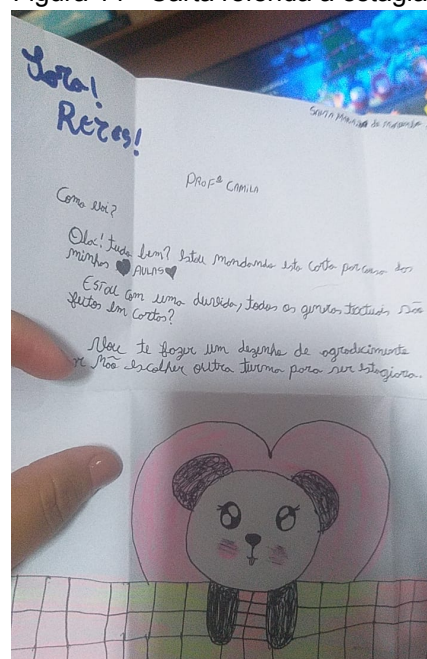 Sora!
Rezes!
Santa Maria
PROFª CAMILA
Como vai?
Olá! tudo bem? Estou mandando esta carta por causa dos
minhas ♥ AULAS ♥
Estou com uma duvida, todos os generos textuais são
feitos em cartas?
Vou te fazer um dezenho de agradecimento
e não escolher outra turma para ser estagiara.